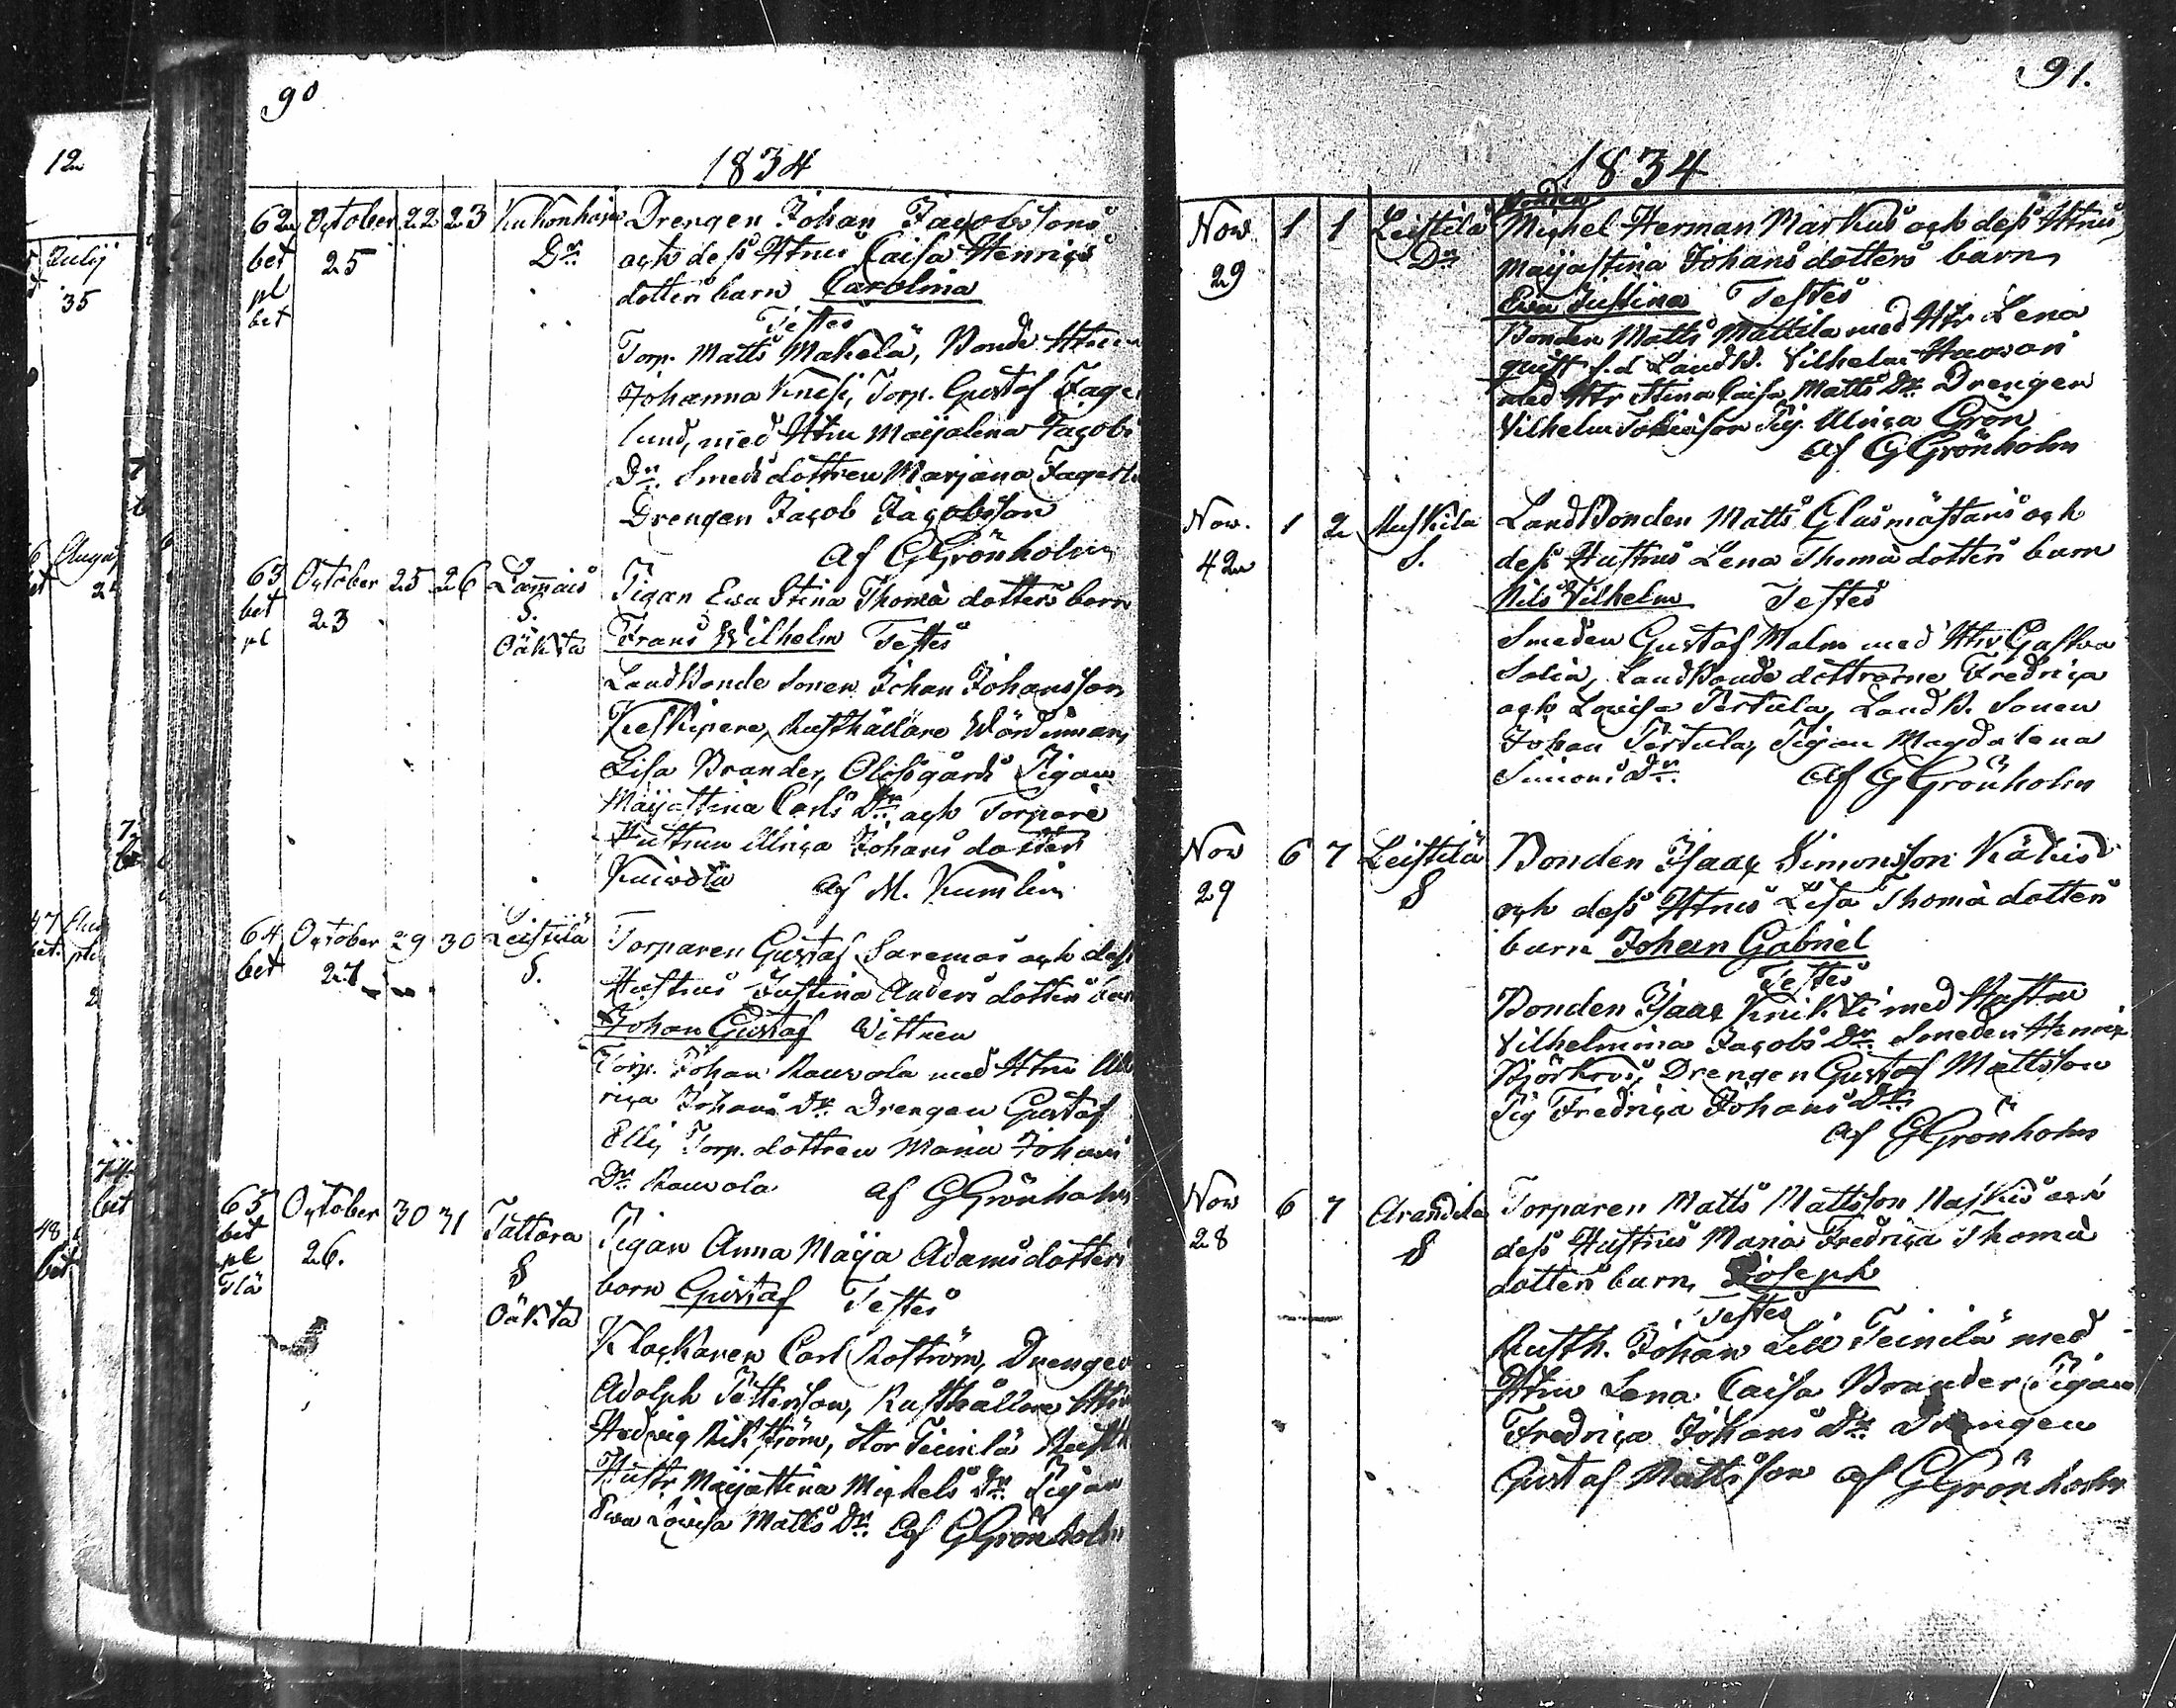 90
1834
62 October 22 23 Kukonharja Drengen Johan Jacobssons
bet 25 Dr och dess Htrus Caisa Henrics
pl dotters barn Carolina
bet Testes
Torp. Matts Mäkelä, Bonde Htrun
Johanna Knihti, Torp. Gustaf Fager
lund, med Htru Maijalena Jacobs
Dr. Smeds dottren Marjana Fagerl
Drengen Jacob Jacobsson
af G Grönholm
63 October 25 26 Lammais Pigan Ewa Stina Thomä dotters barn
bet 23 S. Frans Wilhelm Testes
pl Oäkta
Landbonde Sonen Johan Johansson
Keskipere, Rusthållare Wärdinnan
Lisa Brander, Olofsgårds Pigan
Maijastina Carls Dr. och Torpare
Hustrun Ulrica Johans dotter
Kuiwola af M. Kumlin
64 October 29 30 Leistilä Torparen Gustaf Saremas och dess
bet 27 S. Hustrus Justina Anders dotters barn
Johan Gustaf Wittnen
Torp. Johan Rauvola med Htru Ul
rica Johans Dr. Drengen Gustaf
Elli, Torp. dottren Maria Johans
Dr. Rauvola af G Grönholm
65 October 30 31 Tattara Pigan Anna Maija Adams dotters
bet 26. S barn Gustaf Testes
pl Oäkta
Klockaren Carl Roström, Drengen
Adolph Pettersson, Rusthållare Htru
Hedvig Wikström, Stor Teinilä Rusth
Hustr Maijastina Michels Dr. Pigan
Ewa Lovisa Matts Dr. af G Grönholm
12
Julij
35
91.
1834
Bonden
Nov. 1 1 Leistilä Michel Herman Markus och dess Htrus
29 Dr Maijastina Johans dotters barn
Ewa Justina Testes
Bonden Matts Mattila med Htr Lena
quist s.d. LandB. Vilhelm
med Htr Stina Caisa Matts Dr. Drengen
Vilhelm Tobiasson Pig. Ulrica Grön
af G Grönholm
Nov. 1 2 LandBonden Matts Glasmästars och
42 S. dess Hustrus Lena Thomä dotters barn
Nils Vilhelm Testes
Smeden Gustaf Malm med Htr
Sofia, LandBonde döttrarne Fredrica
och Lovisa Pertula, LandB. Sonen
Johan Pertula, Pigan Magdalena
Simons Dr. af G Grönholm
Nov 6 7 Leistilä Bonden Isaac Simonsson Kähis
29 S och dess Htrus Lisa Thomä dotters
barn Johan Gabriel
Testes
Bonden Isaac Knihti med Hustru
Vilhelmina Jacobs Dr. Smeden Henric
Björkros, Drengen Gustaf Mattsson
Pig Fredrica Johans Dr.
af G Grönholm
Nov 6 7 Arandila Torparen Matts Mattsson och
28 S dess Hustrus Maria Fredrica Thomä
dotters barn, Joseph
Testes
Rusth. Johan Lill Teinilä med
Htru Lena Caisa Brander Pigan
Fredrica Johans Dr. Drengen
Gustaf Mattsson af G Grönholm